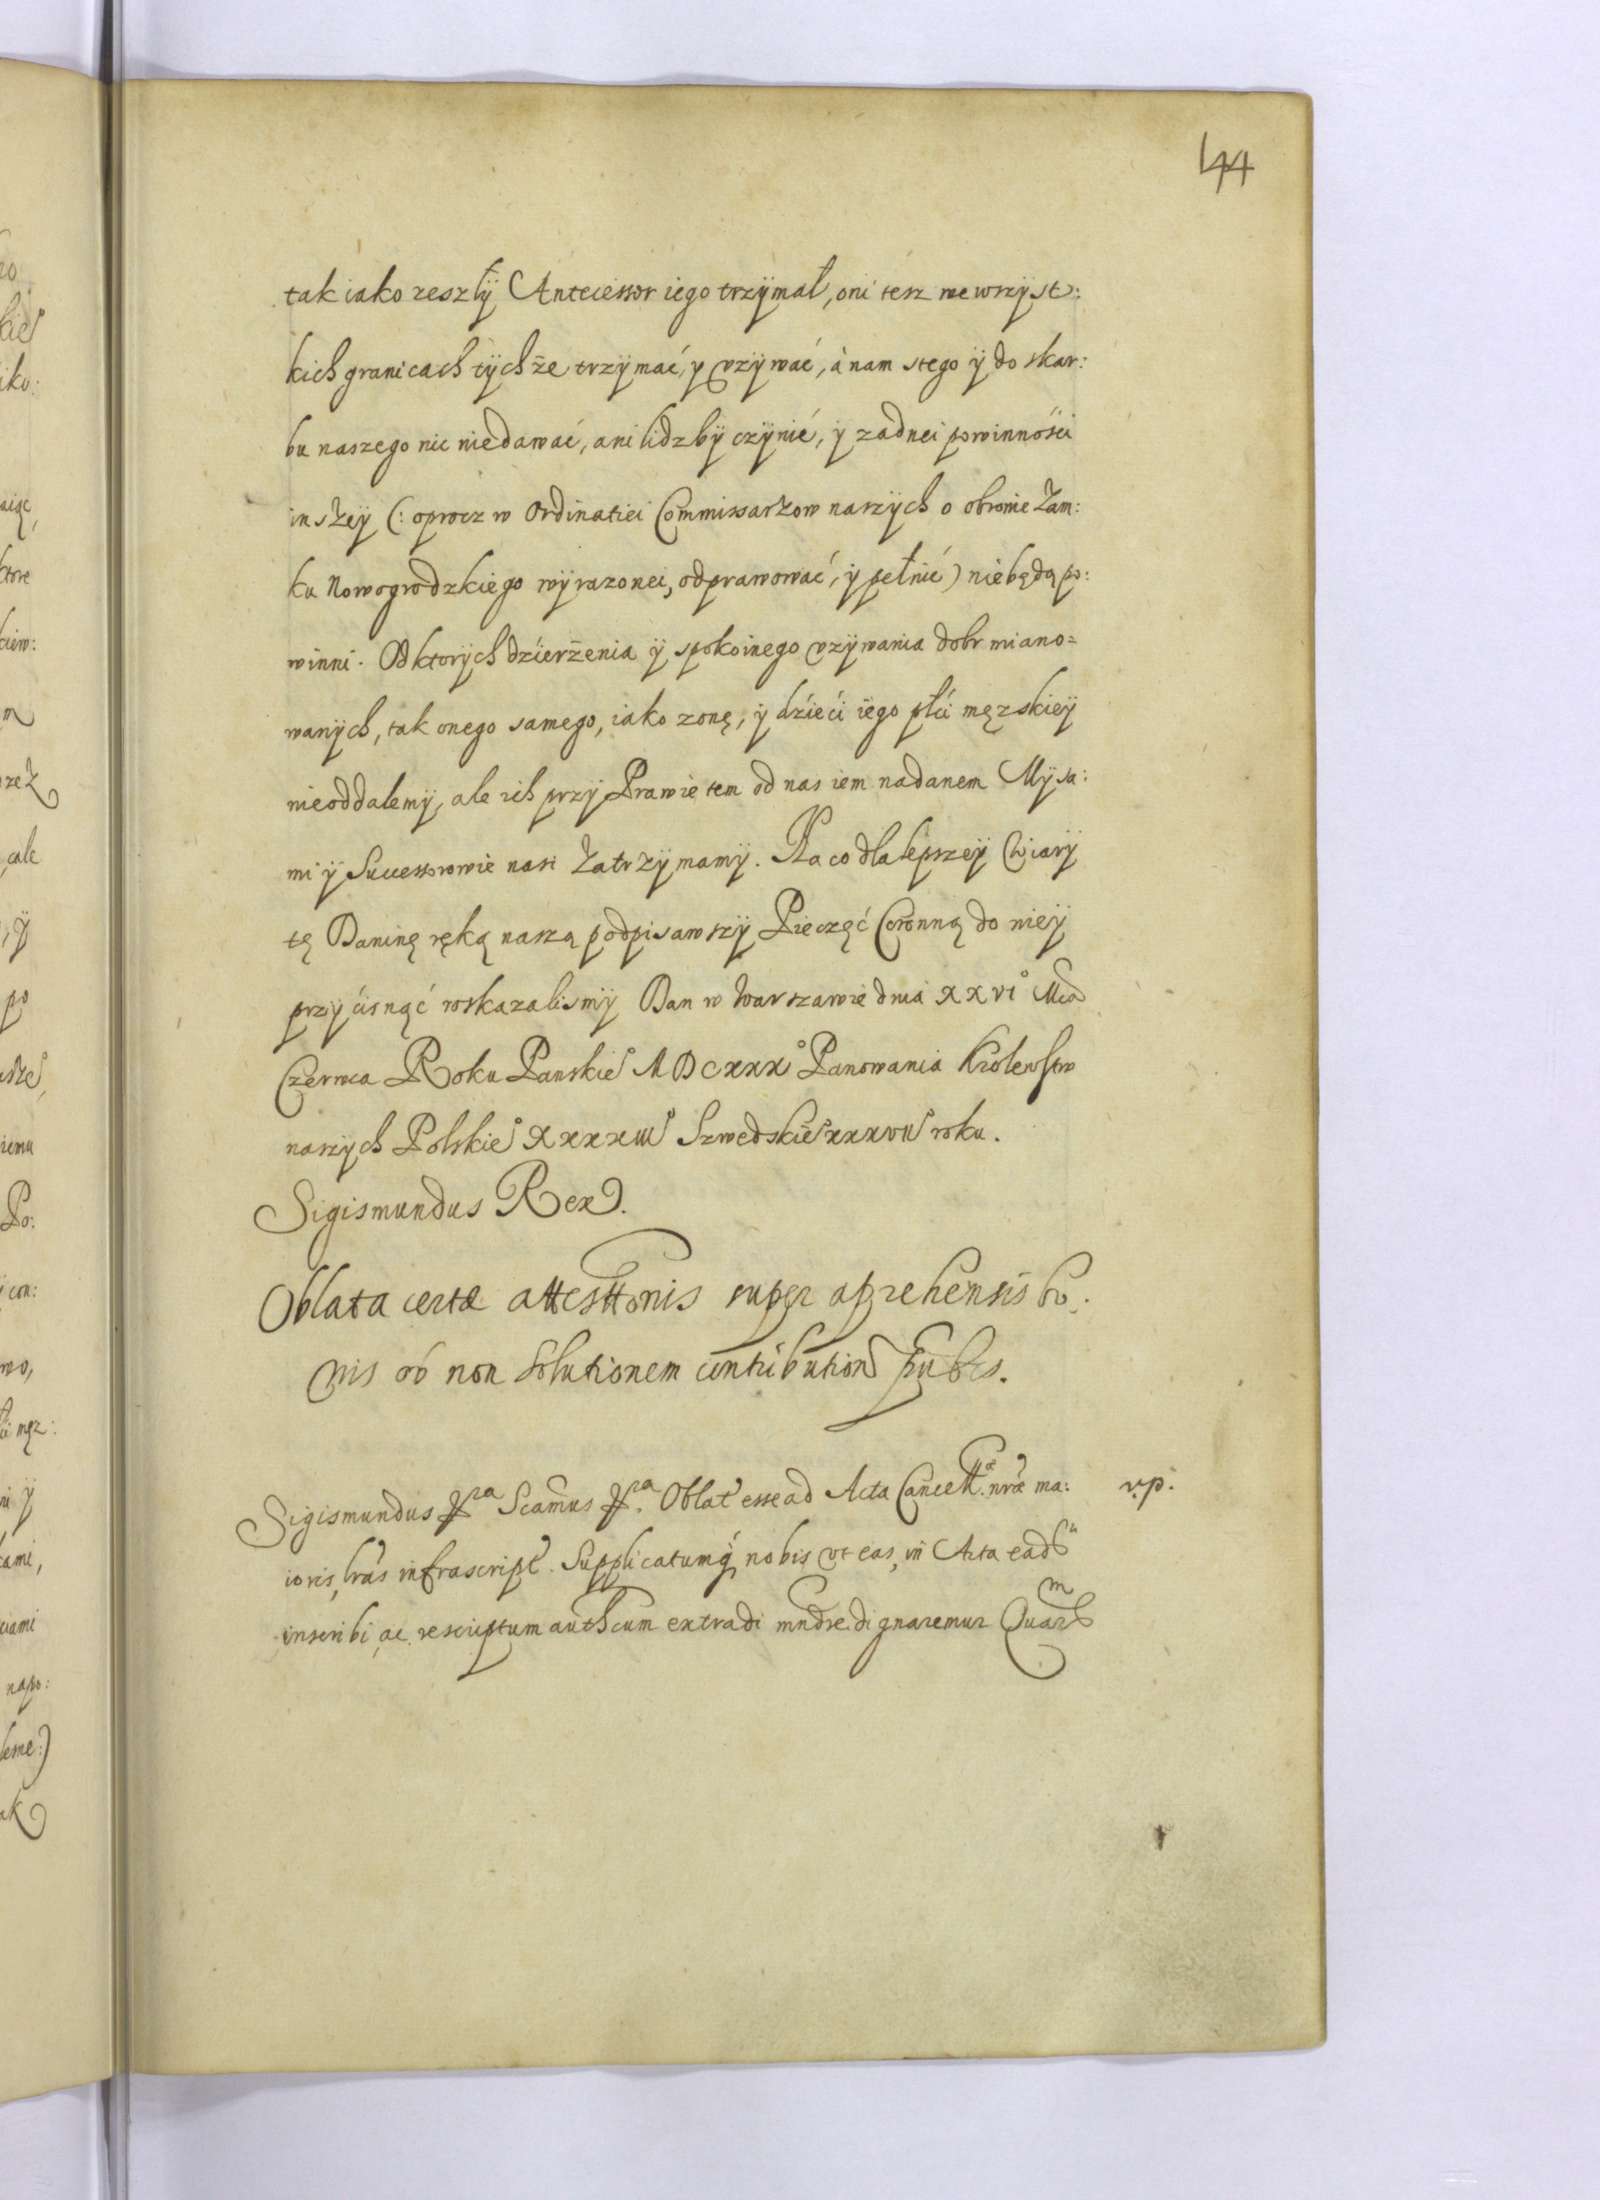 44
tak iako zeszłÿ Antecessor iego trzÿmał, oni tesz we wszÿst:
kich granicach tÿchże trzÿmać, y vzÿwać, à nam stego ÿ do skar:
bu naszego nic niedawać, ani lidzbÿ czÿnić, ÿ zadnei powinnośći
inszeÿ (: oprocz w Ordinatiei Commissarzow naszÿch o obronie Zam:
ku Nowogrodzkiego wÿrazonei, odprawować, ÿ pełnić) niebędą po:
winni. Od ktorÿch dźierżenia ÿ spokoinego vzÿwania dobr miano=
wanÿch, tak onego samego, iako zonę, ÿ dźieći iego płći męzskieÿ
nieoddalemÿ, ale ich przÿ Prawie tem od nas iem nadanem Mÿ sa:
mi ÿ Successorowie nasi Zatrzÿmamÿ. Na co dla lepszeÿ Wiarÿ
tę Daninę ręką naszą podpisawszÿ Pieczęć Coronną do nieÿ
przÿćisnąć roskazalismÿ Dan w Warszawie dnia XXVI° Mca
Czerwca Roku Panskie° MDCXXX° Panowania Krolewstw
naszÿch Polskie° XXXXIII Szwedskie° XXXVII roku.
Sigismundus Rex.
Oblata certæ attesttonis super aprehensis bo:
nis ob non Solutionem contribution publcs.
Sigismundus &ra Scamus &ra. Oblat esse ad Acta Cancell. nræ ma: v.p.
ioris, lras infrascript. Supplicatumq, nobis vt eas, in Acta ead
inscribi, ac rescriptum authcum extradi mndre dignaremur Quar
m